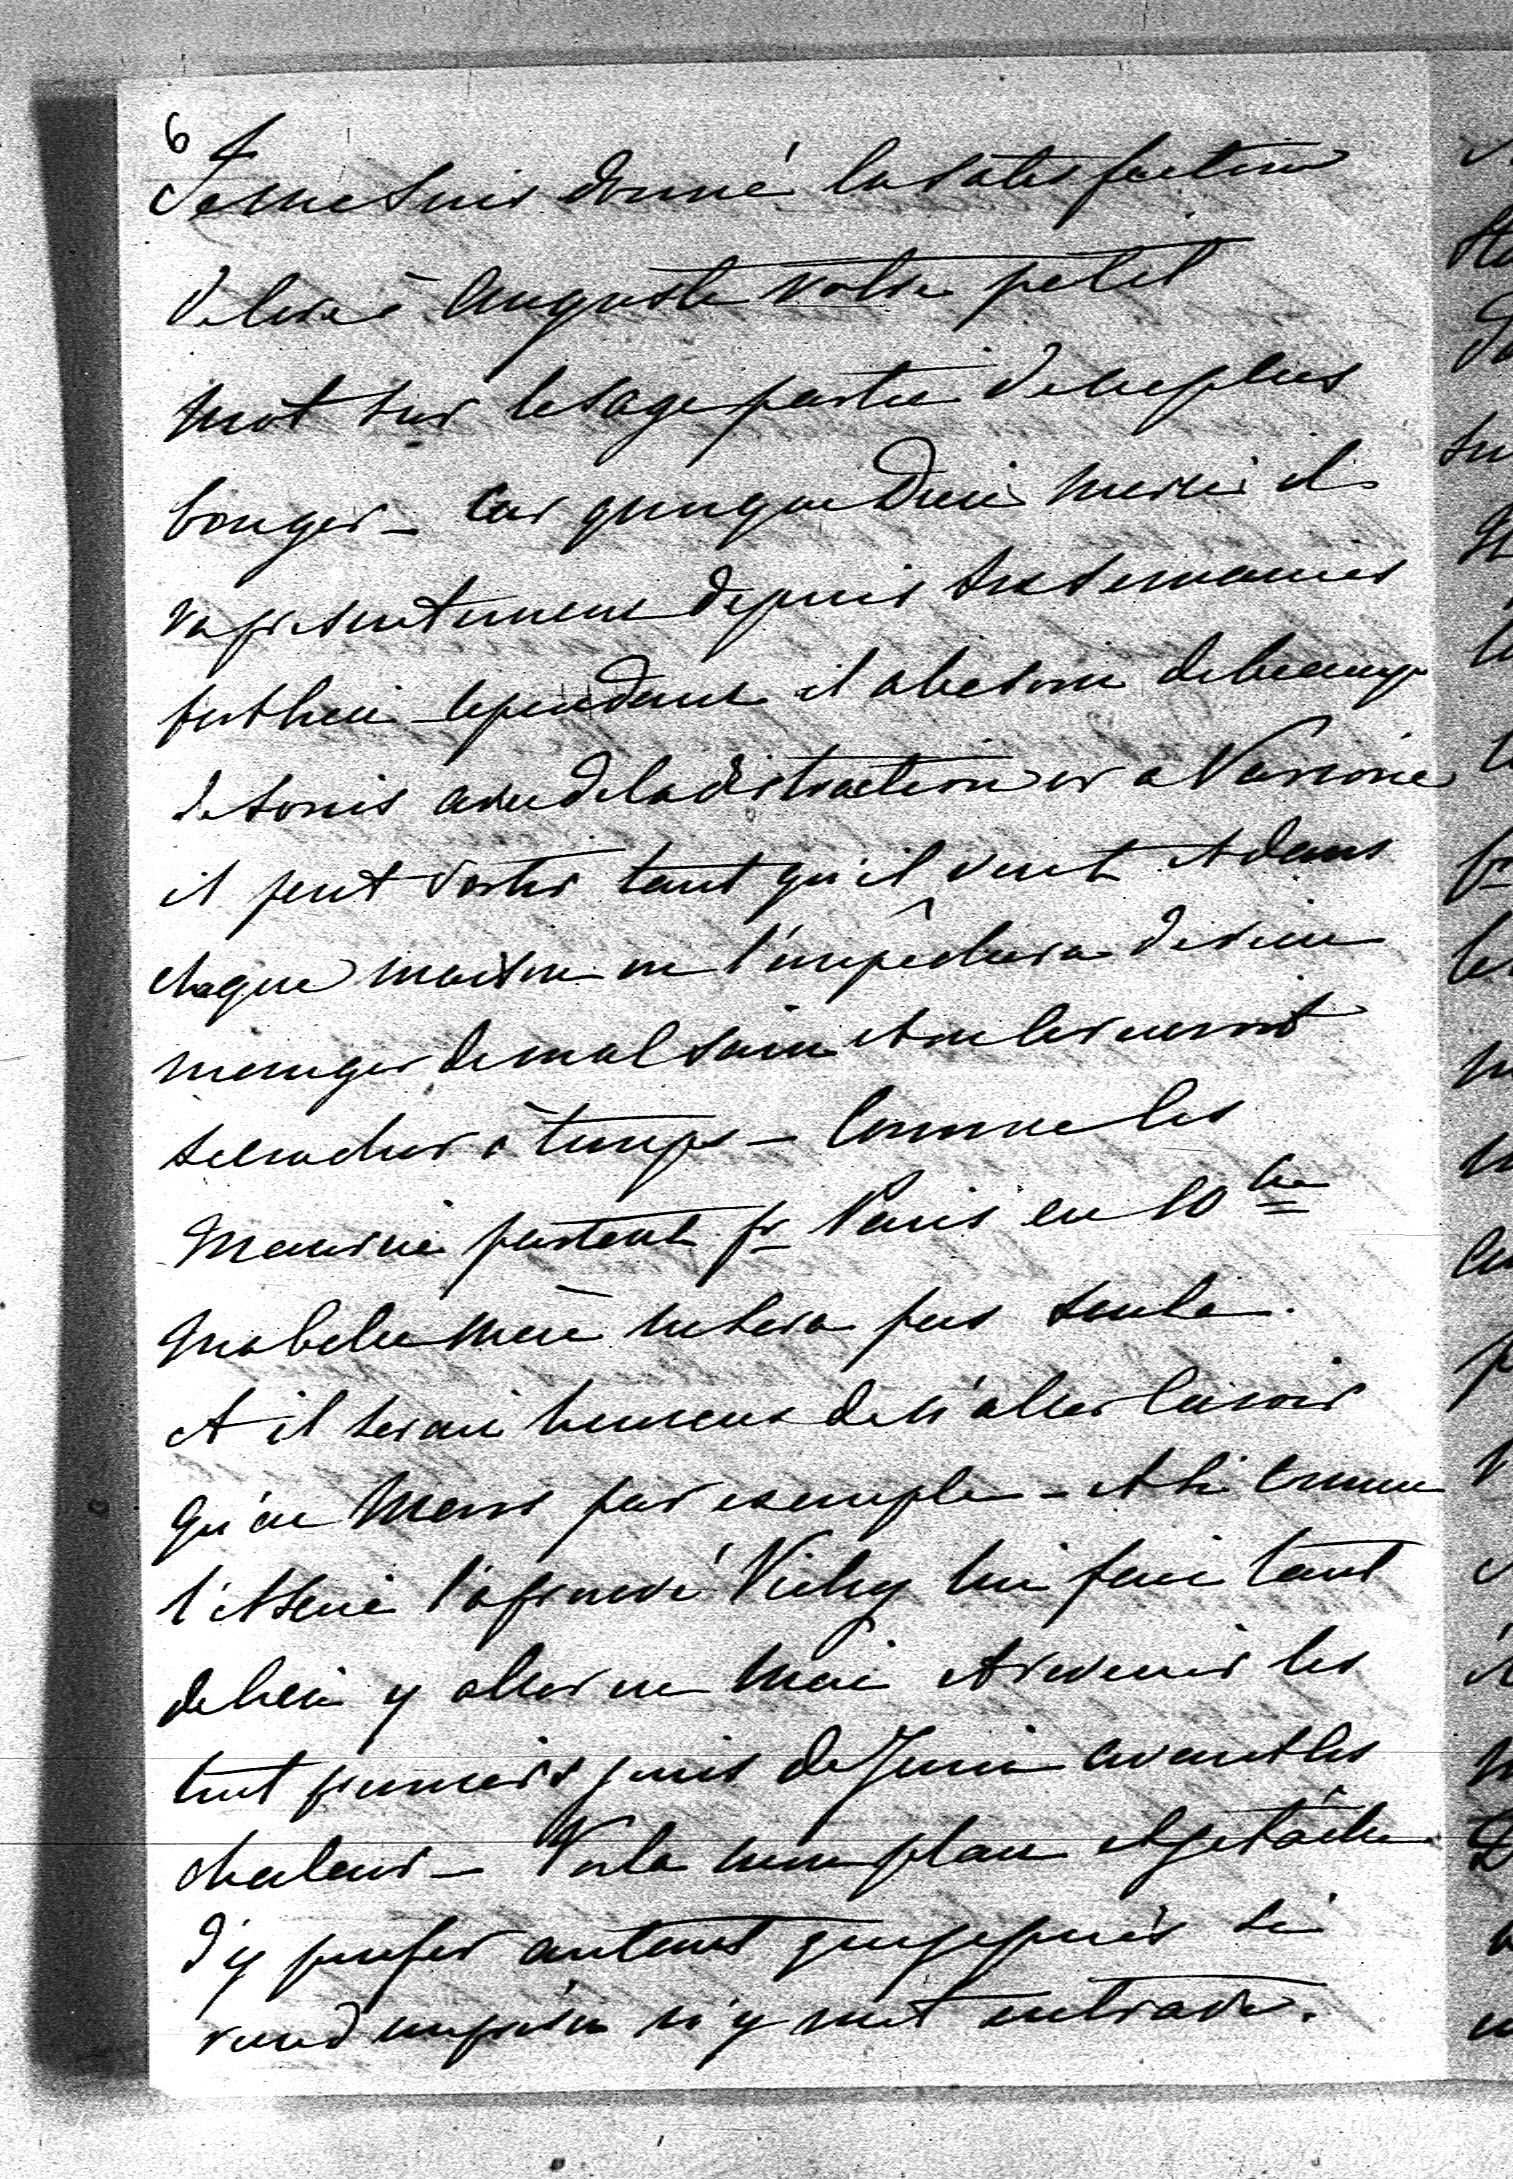 6
Je me suis donné la satisfaction
de lire à Auguste votre petit
mot sur le sage partie de ne plus
bouger – Car quoique Dieu merci il
va presentement depuis six semaines
fort bien – cependant il a besoin de beaucp
de soins avec de la distraction or a Varsovie
il peut sortir tant qu'il veut et dans
chaque maison on l'empêchera de rien
manger de mal sain et on les verront
se coucher à temps – Comme les
Maurice partent pr Paris en 10bre
ma belle mère ne sera pas seule.
et il serait heureux de n'aller la voir
qu'en Mars par exemple – et si comme
l'essai l'a prouvé Vichy lui fait tant
de bien y aller en Mai et revenir les
tout premiers jours de Juin avant les
chaleurs – Voila mon plan et je tâche
d'y penser autant que je puis si
rien d'imprévu n'y met entrave.